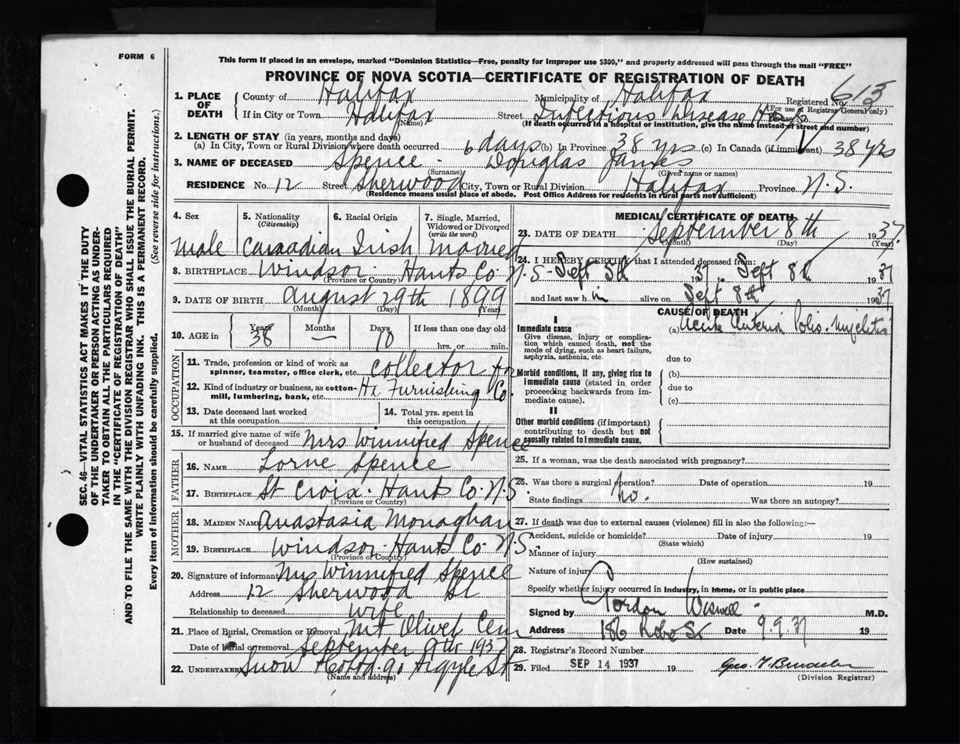 FORM 6
This form if placed in an envelope, marked "Dominion Statistics—Free, penalty for improper use $300," and properly addressed will pass through the mail "FREE"
PROVINCE OF NOVA SCOTIA—CERTIFICATE OF REGISTRATION OF DEATH
1. PLACE OF DEATH
County of Halifax Municipality of Halifax Registered No. 613
(For use of Registrar General only)
If in City or Town Halifax (Name) Street Infectious Disease
(If death occurred in a hospital or institution, give the name instead of street and number)
2. LENGTH OF STAY (in years, months and days)
(a) In City, Town or Rural Division where death occurred 6 days (b) In Province 38 yrs (c) In Canada (if immigrant) 38 yrs
3. NAME OF DECEASED Spence - Douglas James
(Surname) (Given name or names)
RESIDENCE No. 12 Street Sherwood City, Town or Rural Division Halifax Province N.S.
(Residence means usual place of abode. Post Office Address for residents in rural parts not sufficient)
4. Sex 5. Nationality (Citizenship) 6. Racial Origin 7. Single, Married, Widowed or Divorced (write the word)
Male Canadian Irish Married
8. BIRTHPLACE Windsor Hants Co N.S.
(Province or Country)
9. DATE OF BIRTH August 29th 1899
(Month) (Day) (Year)
10. AGE in Years 38 Months — Days 10 If less than one day old hrs. or min.
OCCUPATION
11. Trade, profession or kind of work as spinner, teamster, office clerk, etc. Collector
12. Kind of industry or business, as cotton-mill, lumbering, bank, etc. Furnishing Co.
13. Date deceased last worked at this occupation 14. Total yrs. spent in this occupation
15. If married give name of wife or husband of deceased Mrs Winnifred Spence
FATHER
16. NAME Lorne Spence
17. BIRTHPLACE St Croix Hants Co. N.S.
(Province or Country)
MOTHER
18. MAIDEN NAME Anastasia Monaghan
19. BIRTHPLACE Windsor Hants Co N.S.
(Province or Country)
20. Signature of informant Mrs Winnifred Spence
Address 12 Sherwood St
Relationship to deceased wife
21. Place of Burial, Cremation or Removal Mt Olivet Cem
Date of burial or removal September 9th 1937
22. UNDERTAKER Snow 90 Argyle St
(Name and address)
MEDICAL CERTIFICATE OF DEATH
23. DATE OF DEATH September 8th 1937
(Month) (Day) (Year)
24. I HEREBY CERTIFY that I attended deceased from:
Sept 5th 1937 Sept 8th 1937
and last saw him alive on Sept 8th 1937
CAUSE OF DEATH
I
Immediate cause (a) Acute Anterior Polio-Myelitis
Give disease, injury or complication which caused death, not the mode of dying, such as heart failure, asphyxia, asthenia, etc.
due to
Morbid conditions, if any, giving rise to immediate cause (stated in order proceeding backwards from immediate cause).
(b)
due to
(c)
II
Other morbid conditions (if important) contributing to death but not causally related to immediate cause.
25. If a woman, was the death associated with pregnancy?
26. Was there a surgical operation? Date of operation 19
State findings no. Was there an autopsy?
27. If death was due to external causes (violence) fill in also the following:—
Accident, suicide or homicide? Date of injury 19
(State which)
Manner of injury
(How sustained)
Nature of injury
Specify whether injury occurred in industry, in home, or in public place
Signed by Gordon Wiswell M.D.
Address 186 Robie St Date 9 9 37 19
28. Registrar's Record Number
29. Filed SEP 14 1937 19
(Division Registrar)
SEC. 46—VITAL STATISTICS ACT MAKES IT THE DUTY
OF THE UNDERTAKER OR PERSON ACTING AS UNDER-
TAKER TO OBTAIN ALL THE PARTICULARS REQUIRED
IN THE "CERTIFICATE OF REGISTRATION OF DEATH"
AND TO FILE THE SAME WITH THE DIVISION REGISTRAR WHO SHALL ISSUE THE BURIAL PERMIT.
WRITE PLAINLY WITH UNFADING INK. THIS IS A PERMANENT RECORD.
Every item of information should be carefully supplied. (See reverse side for instructions.)